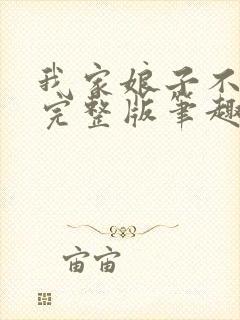 我家娘子不
完整版笔趣
宙宙